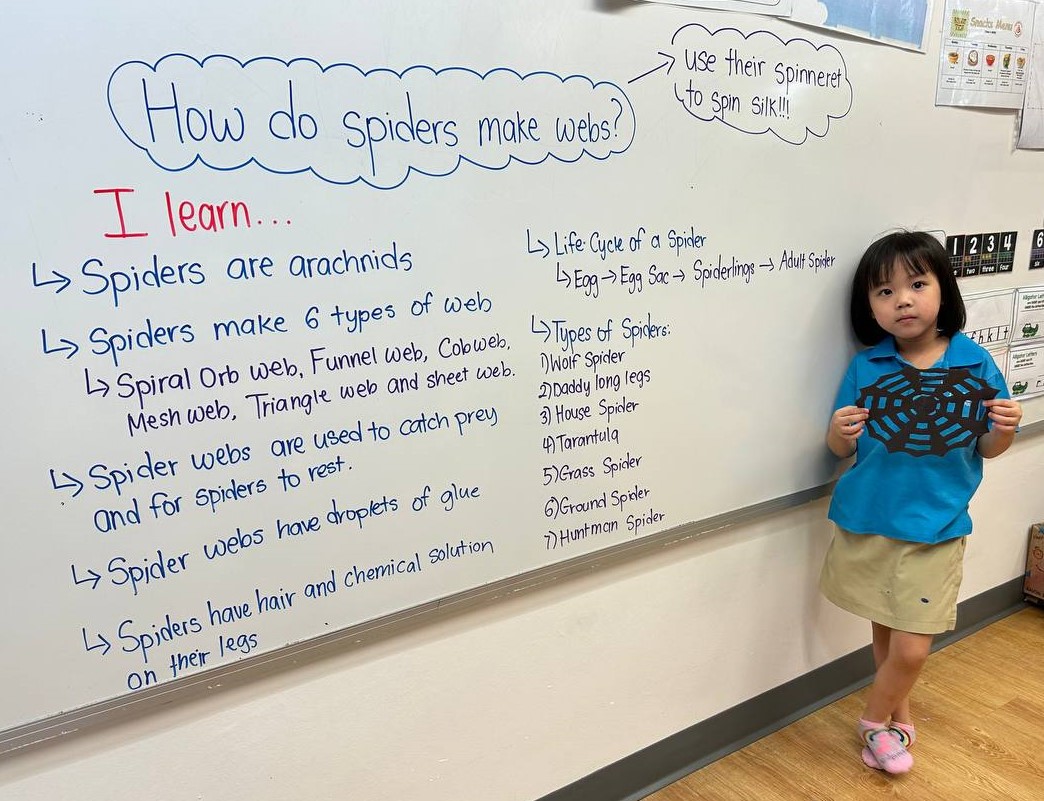 How do spiders make webs?
use their spinneret
to spin silk!!!
I learn...
↳ Spiders are arachnids
↳ Spiders make 6 types of web
↳ Spiral Orb web, Funnel web, Cobweb,
Mesh web, Triangle web and sheet web.
↳ Spider webs are used to catch prey
and for spiders to rest.
↳ Spider webs have droplets of glue
↳ Spiders have hair and chemical solution
on their legs
↳ Life Cycle of a Spider
↳ Egg → Egg Sac → Spiderlings → Adult Spider
↳ Types of Spiders:
1) Wolf Spider
2) Daddy long legs
3) House Spider
4) Tarantula
5) Grass Spider
6) Ground Spider
7) Huntman Spider
Snacks Menu
1 2 3 4 6
two three four
Alligator Letters
Alligator Letters